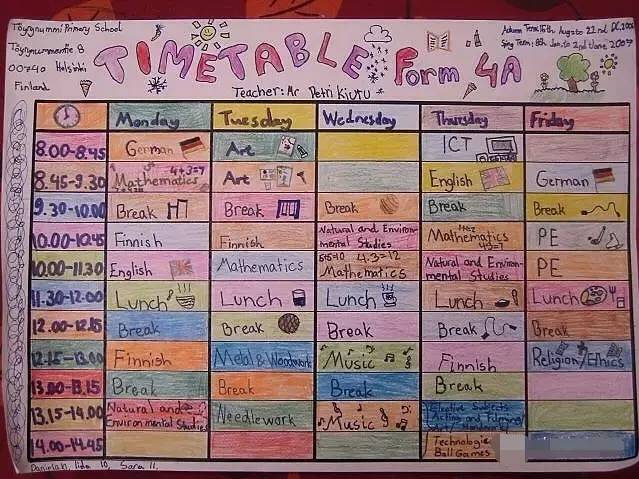 Töyrynummi Primary School
Töyrynummentie 8
00740 Helsinki
Finland
TIMETABLE Form 4A
Teacher: Mr Petri
Autumn Term 16th August to 22nd
Spring Term: 8th Jan. to 2nd June
Monday Tuesday Wednesday Thursday Friday
8.00-8.45 German Art ICT
8.45-9.30 Mathematics 4+3=7 Art English German
9.30-10.00 Break Break Break Break Break
10.00-10.45 Finnish Finnish Natural and Environ-mental Studies Mathematics PE
10.00-11.30 English Mathematics Mathematics 4.3=12 Natural and Environ-mental Studies PE
11.30-12.00 Lunch Lunch Lunch Lunch Lunch
12.00-12.15 Break Break Break Break Break
12.15-13.00 Finnish Metal & Woodwork Music Finnish Religion/Ethics
13.00-13.15 Break Break Break Break
13.15-14.00 Natural and Environmental Studies Needlework Music Elective Subjects Acting and
14.00-14.45 Technologie Ball Games
Iida 10, Sara 11.